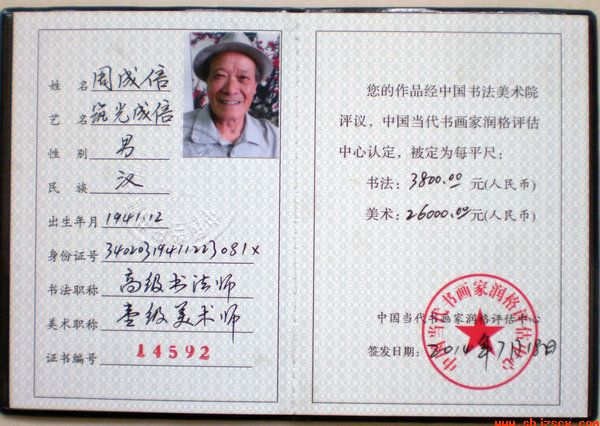 姓 名 周成倍
艺 名 光成倍
性 别 男
民 族 汉
出生年月 1941.12
身份证号 34020319411223081X
书法职称 高级书法师
美术职称 壹级美术师
证书编号 14592
您的作品经中国书法美术院
评议，中国当代书画家润格评估
中心认定，被定为每平尺：
书法：3800.00 元(人民币)
美术：26000.00 元(人民币)
中国当代书画家润格评估中心
中国当代书画家润格评估中心
签发日期：2014年7月18日
www.shjzscx.com